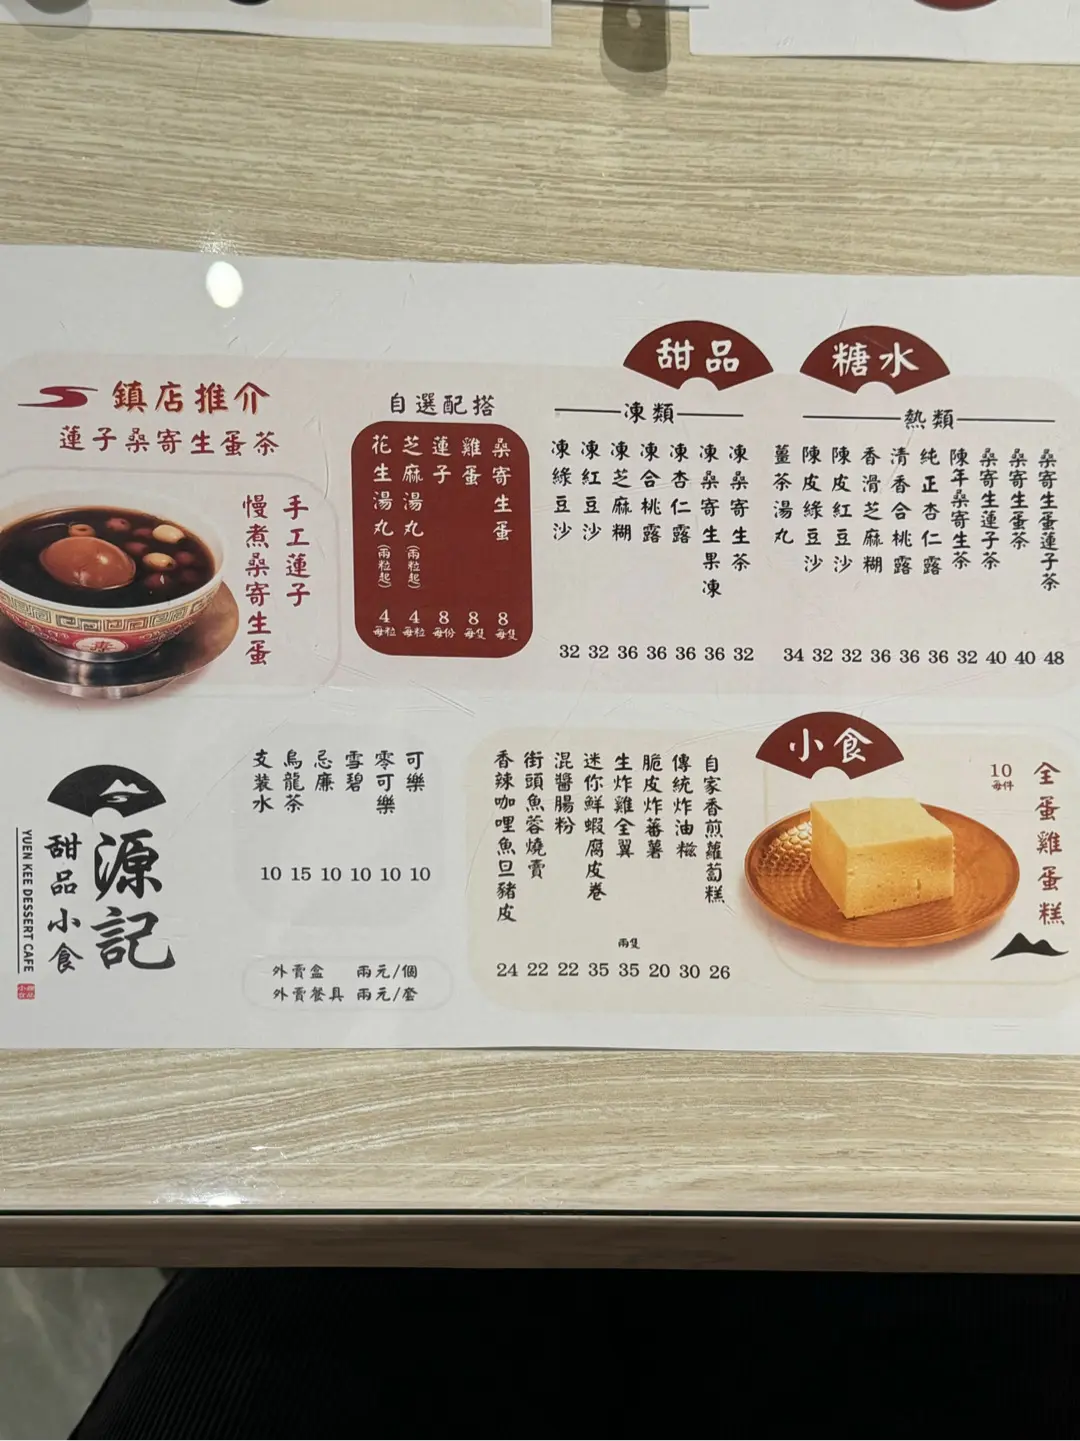 甜品
糖水
鎮店推介
蓮子桑寄生蛋茶
手工蓮子
慢煮桑寄生蛋
自選配搭
桑寄生蛋 8 每隻
雞蛋 8 每隻
蓮子 8 每份
芝麻湯丸(兩粒起) 4 每粒
花生湯丸(兩粒起) 4 每粒
凍類
凍桑寄生茶 32
凍桑寄生果凍 36
凍杏仁露 36
凍合桃露 36
凍芝麻糊 36
凍紅豆沙 32
凍綠豆沙 32
熱類
桑寄生蛋蓮子茶 48
桑寄生蛋茶 40
桑寄生蓮子茶 40
陳年桑寄生茶 32
純正杏仁露 36
清香合桃露 36
香滑芝麻糊 36
陳皮紅豆沙 32
陳皮綠豆沙 32
薑茶湯丸 34
源記
甜品小食
YUEN KEE DESSERT CAFE
可樂 10
零可樂 10
雪碧 10
忌廉 10
烏龍茶 15
支裝水 10
外賣盒 兩元/個
外賣餐具 兩元/套
小食
自家香煎蘿蔔糕 26
傳統炸油糍 30
脆皮炸蕃薯 20
生炸雞全翼 兩隻 35
迷你鮮蝦腐皮卷 35
混醬腸粉 22
街頭魚蓉燒賣 22
香辣咖哩魚旦豬皮 24
全蛋雞蛋糕
10
每件